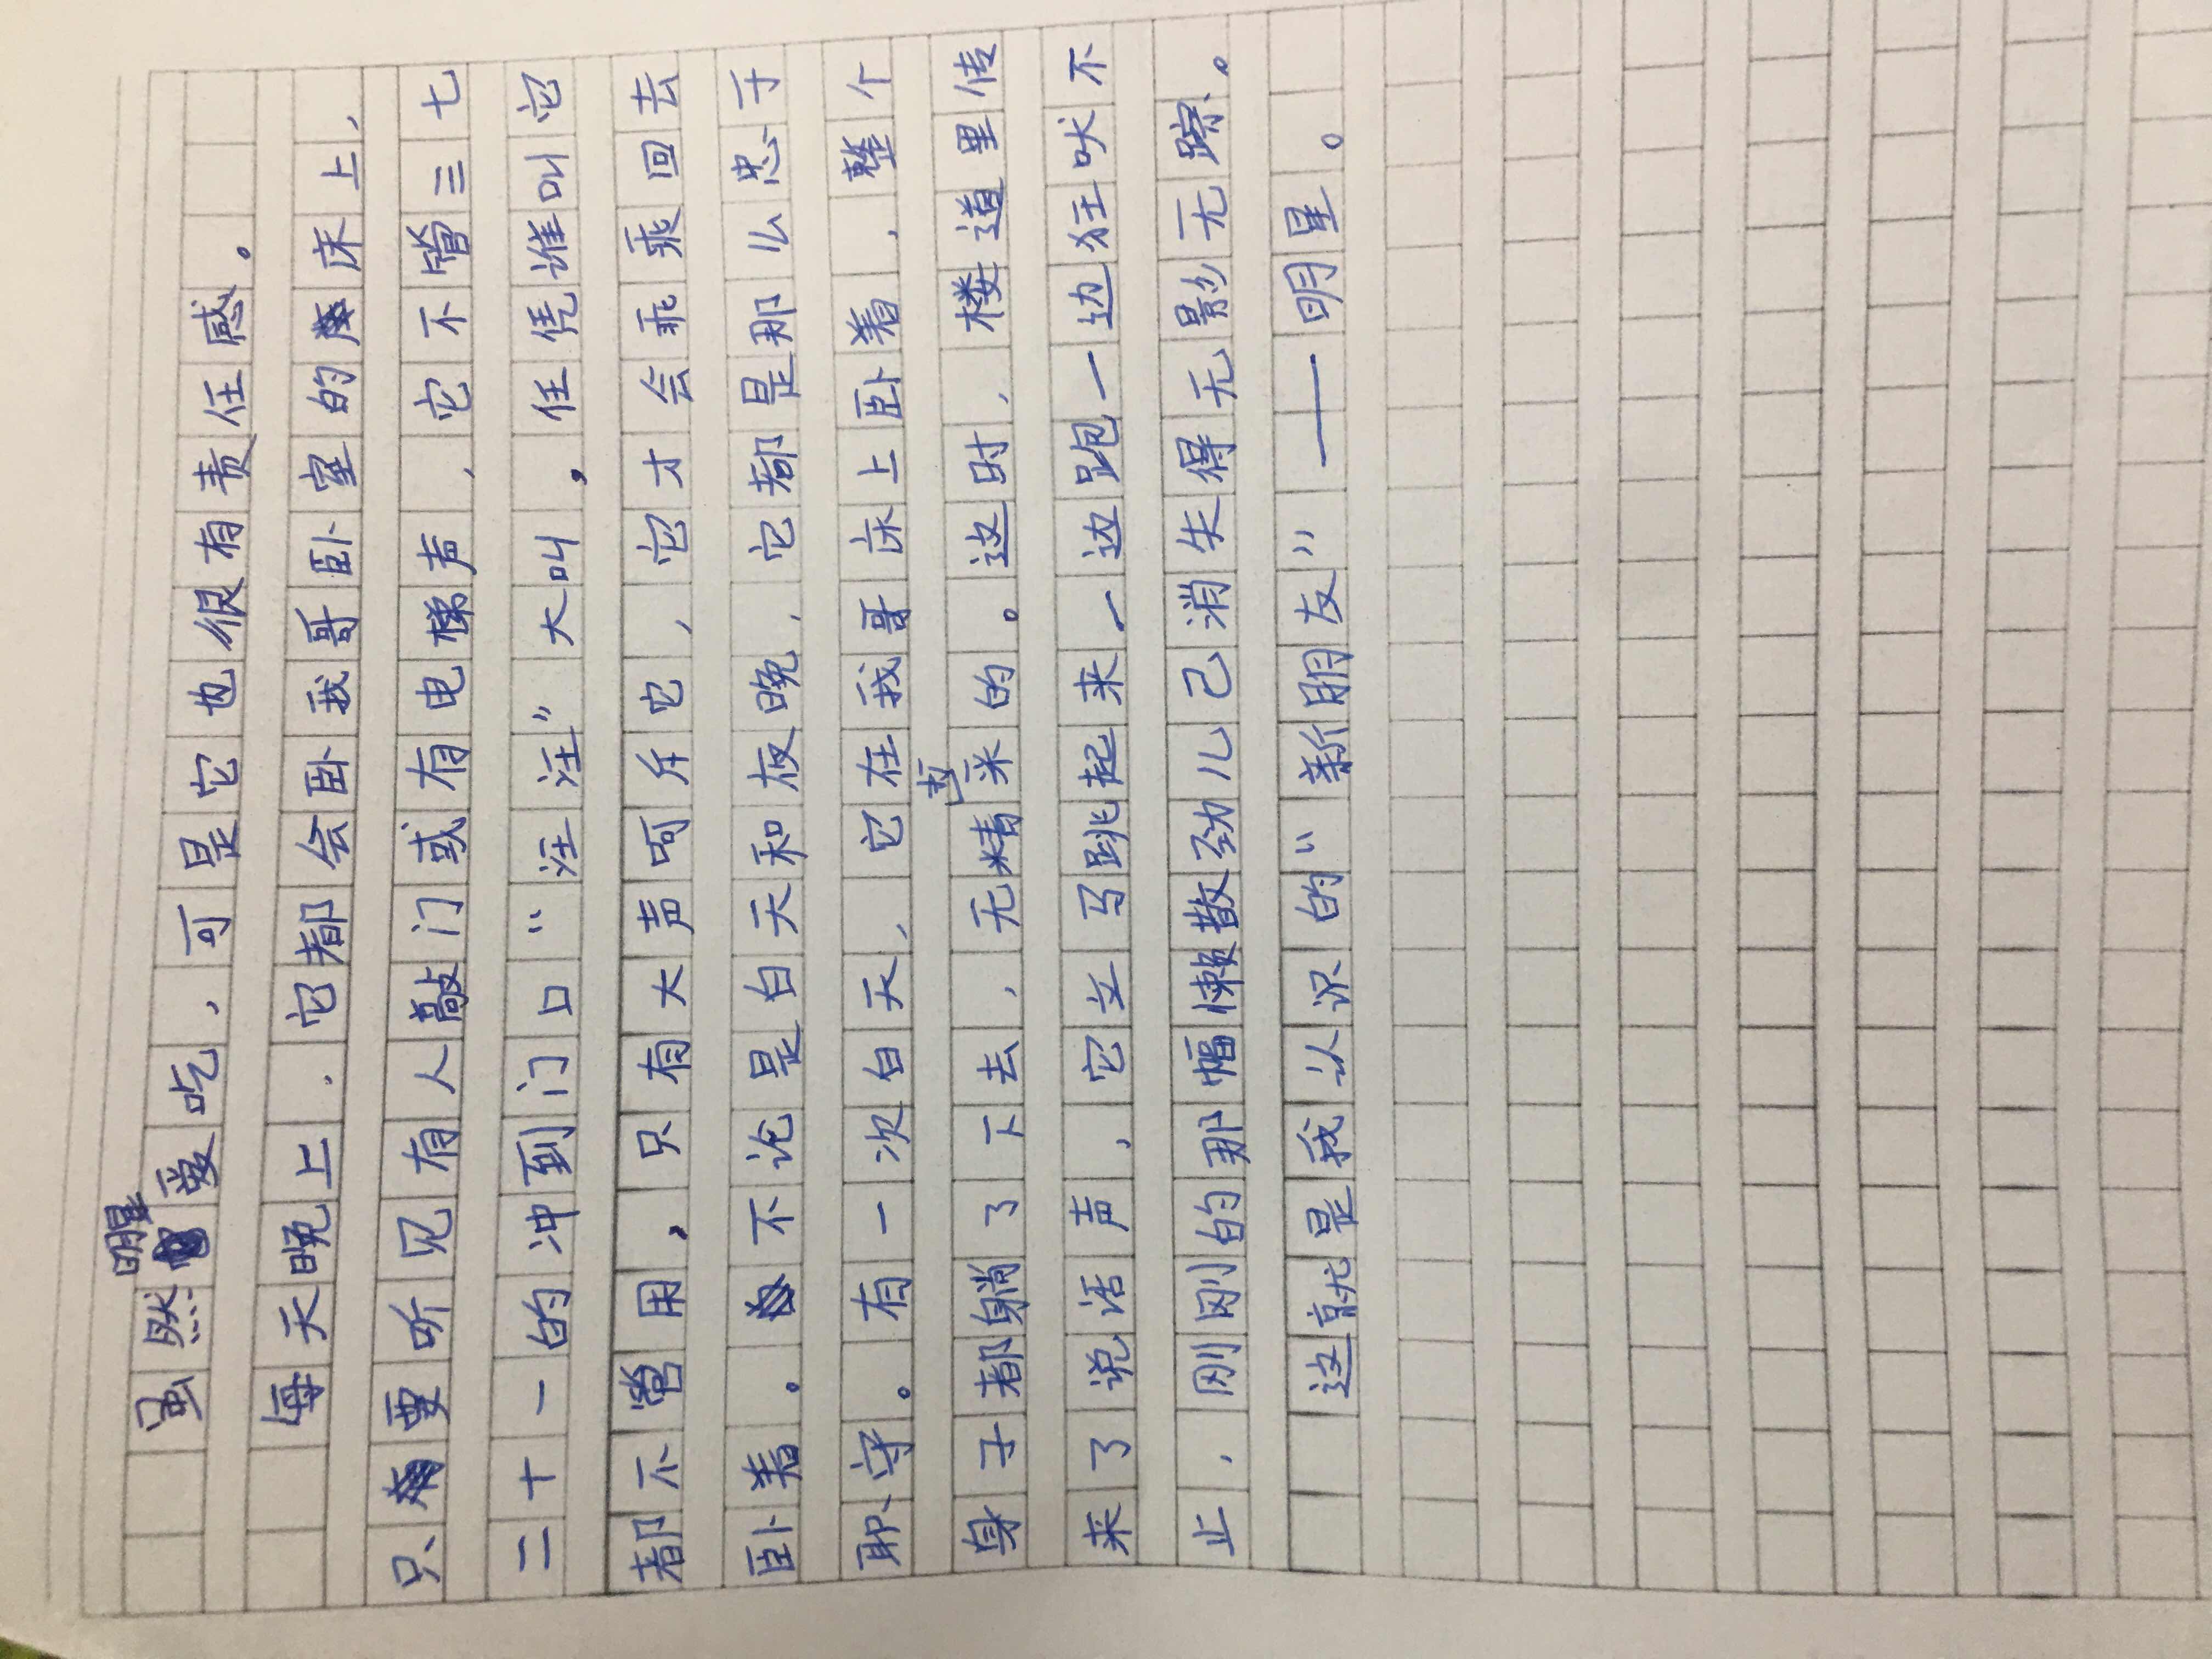 虽然明星爱吃，可是它也很有责任感。
每天晚上，它都会卧我哥卧室的床上，
只要听见有人敲门或有电梯声，它不管三七
二十一的冲到门口“汪汪”大叫，任凭谁叫它
都不管用，只有大声呵斥它，它才会乖乖回去
卧着。不论是白天和夜晚，它都是那么忠于
职守。有一次白天，它在我哥床上卧着，整个
身子都躺了下去，无精打采的。这时，楼道里传
来了说话声，它立马跳起来一边跑一边狂吠不
止，刚刚的那幅懒散劲儿已消失得无影无踪。
这就是我认识的“新朋友”——明星。